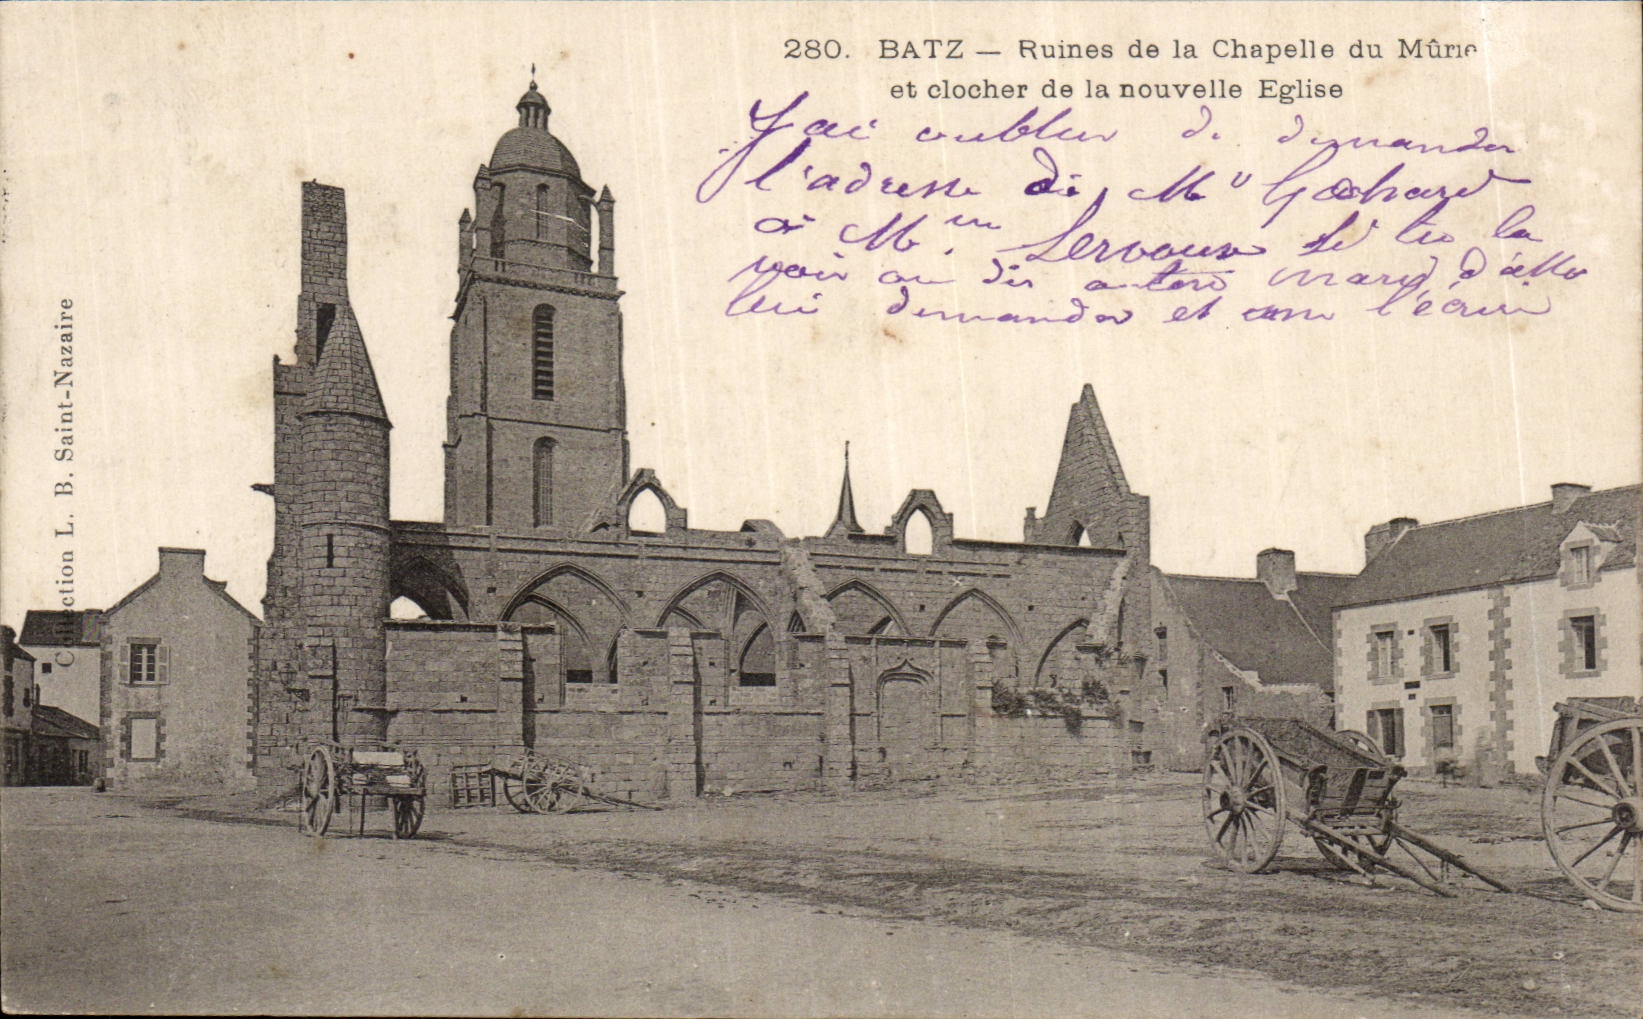 280. BATZ — Ruines de la Chapelle du Mûrie
et clocher de la nouvelle Eglise
J'ai oublier de demander
l'adresse de Mr Gachard
à Mme Servaux si tu la
voir ou dis a ton mary d'aller
lui demander et me l'écrire
Collection L. B. Saint-Nazaire